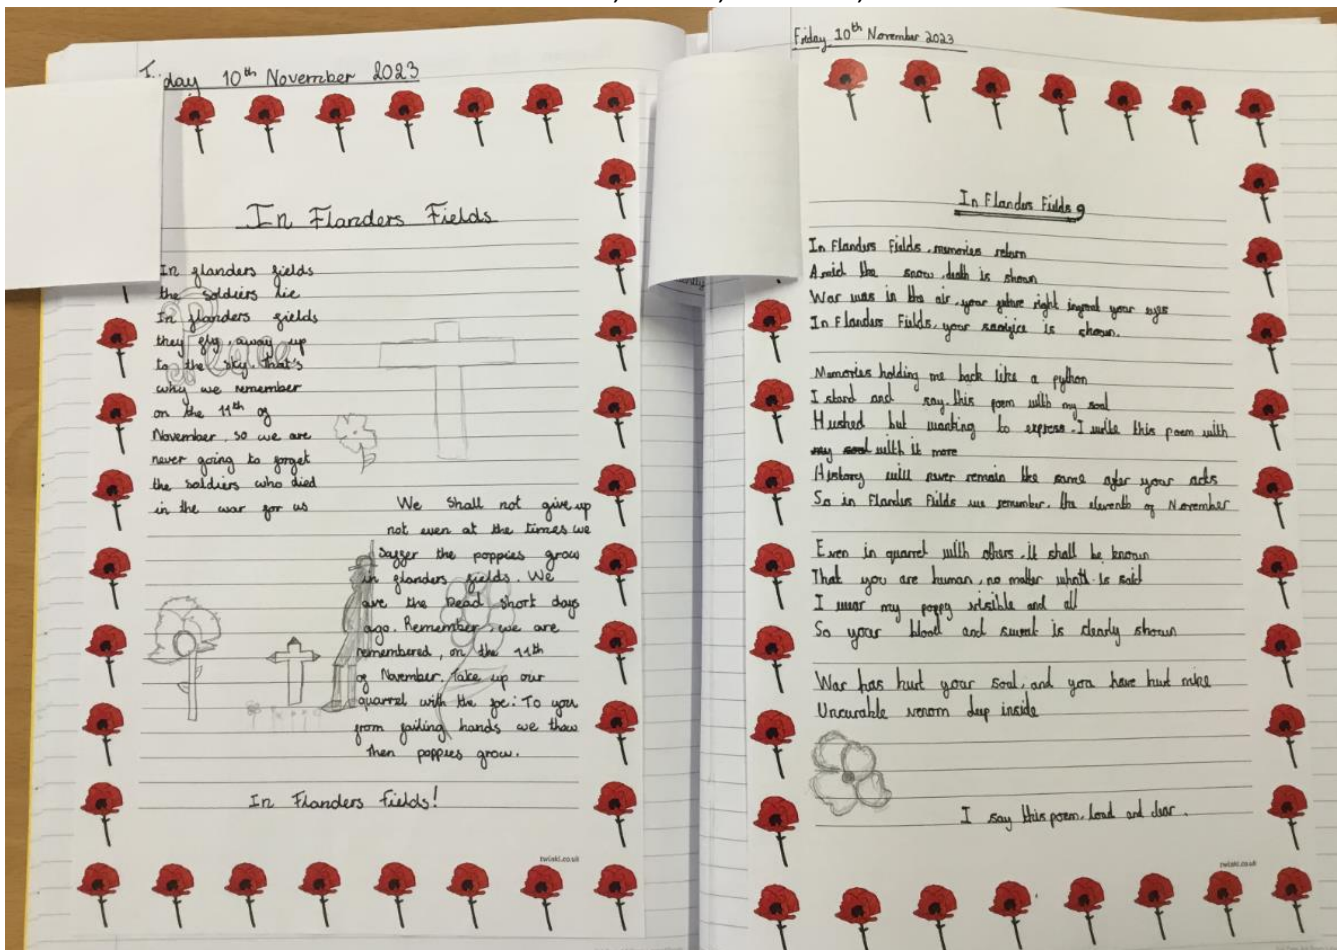 Friday 10th November 2023
In Flanders Fields
In flanders fields
the soldiers lie
In flanders fields
they fly, away up
to the sky. That's
why we remember
on the 11th of
November, so we are
never going to forget
the soldiers who died
in the war for us
We Shall not give up
not even at the times we
Suffer the poppies grow
in flanders fields. We
are the Dead short days
ago. Remember, we are
remembered, on the 11th
of November. Take up our
quarrel with the foe: To you
from failing hands we thow
then poppies grow.
In Flanders Fields!
twinkl.co.uk
Friday 10th November 2023
In Flanders Fields
In Flanders Fields, memories return
Amid the snow, death is shown
War was in the air, your future right infront your eyes
In Flanders Fields, your sacrifice is shown.
Memories holding me back like a python
I stand and say, this poem with my soul
Hushed but wanting to express, I write this poem with
my soul with it more
History will never remain the same after your acts
So in Flanders Fields we remember, the eleventh of November
Even in quarrel with others, it shall be known
That you are human, no matter what is said
I wear my poppy visible and all
So your blood and sweat is clearly shown
War has hurt your soul, and you have hurt mine
Uncurable venom deep inside
I say this poem, loud and clear.
twinkl.co.uk